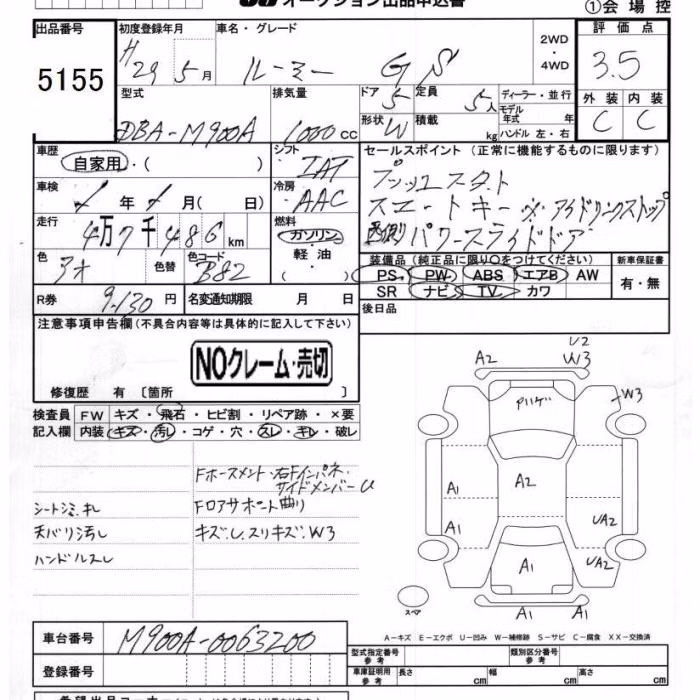 オークション出品申込書
①会場控
出品番号
5155
初度登録年月
H29 5月
車名・グレード
ルーミー GS
2WD
・
4WD
評価点
3.5
外装 内装
C C
型式
DBA-M900A
排気量
1000 cc
ドア 5
定員 5人
形状 W
積載 kg
ディーラー・並行
モデル年式 年
ハンドル 左・右
車歴
自家用・( )
シフト
IAT
車検
年 月( 日)
冷房
AAC
走行
4万7千486km
燃料
ガソリン・
軽油・
( )
色
アオ
色替
色コード
B82
R券
9,130円
名変通知期限 月 日
セールスポイント(正常に機能するものに限ります)
プッシュスタート
スマートキー ・アイドリングストップ
パワースライドドア
装備品(純正品に限り○をつけてください)
PS PW ABS エアB AW
SR ナビ TV カワ
新車保証書
有・無
後日品
注意事項申告欄(不具合内容等は具体的に記入して下さい)
NOクレーム・売切
修復歴 有〔箇所 〕
検査員記入欄
FW キズ・飛石・ヒビ割・リペア跡・×要
内装 キズ・汚レ・コゲ・穴・スレ・キレ・破レ
Fホースメント・右Fインパネ・
サイドメンバーU
シートシミ、キレ
Fロアサポート曲り
天バリ汚レ
キズ、U、スリキズ、W3
ハンドルスレ
U2
A2 W3
Pハゲ
W3
A1
A2
A1
UA2
A1
UA2
スペア
A1 A1
A-キズ E-エクボ U-凹み W-補修跡 S-サビ C-腐食 XX-交換済
車台番号
M900A-0063200
登録番号
型式指定番号 参考
類別区分番号 参考
車庫証明用 参考 長さ cm 幅 cm 高さ cm
希望出品コーナー